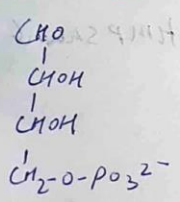 CHO
CHOH
CHOH
CH₂-O-PO₃²⁻